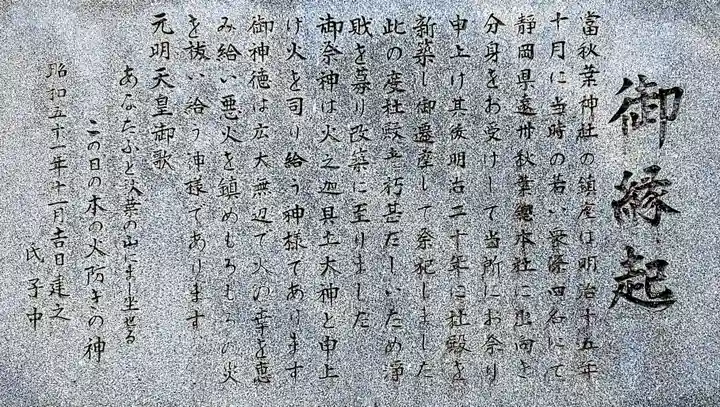 御縁起
當秋葉神社の鎮座は明治十五年
十月に当時の若い衆係四名にて
静岡県遠州秋葉總本社に出向き
分身をお受けして当所にお祭り
申上け其後明治二十年に社殿を
新築し御遷座して祭祀しました
此の度社殿老朽甚だしいため浄
財を募り改築に至りました
御祭神は火之迦具土大神と申上
け火を司り給う神様であります
御神徳は広大無辺で火の幸を恵
み給い悪火を鎮めもろもろの火
を祓い給う神様であります
元明天皇御歌
あなたふと秋葉の山にまし坐せる
この日の本の火防ぎの神
昭和五十一年十一月吉日建之
氏子中